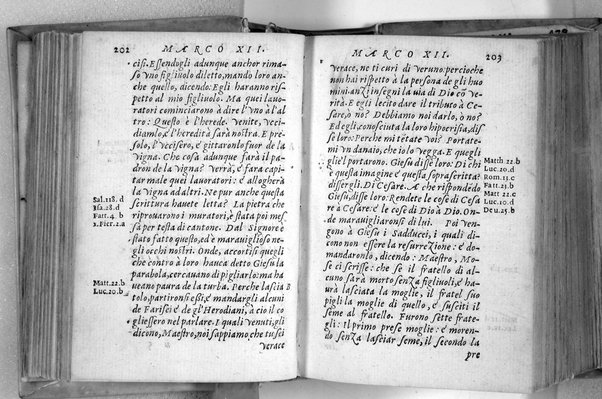 202 MARCO XII.
cisi. Essendogli adunque anchor rima-
so vno figliuolo diletto, mando loro an-
che quello, dicendo. Egli haranno rispet-
to al mio figliuolo. Ma quei lauo-
ratori cominciarono à dire l'vno à l'al-
tro: Questo è l'herede. venite, vcci-
diamlo, e l'heredità sarà nostra. E pre-
solo, l'vccisero, e gittaronlo fuor de la
vigna. Che cosà adunque farà il pa-
dron de la vigna? Verrà, e farà capi-
tar male quei lauoratori: e allogherà
la vigna ad altri. Ne pur anche questa
scrittura hauete letta? La pietra che
riprouarono i muratori, è stata poi mes
sà per testa di cantone. Dal Signore è
stato fatto questo, ed è marauiglioso ne-
gli occhi nostri. Onde, accorti che fu
quegli è contro à loro hauea detto Giesu la
parabola, cercauano di pigliarlo: ma ha
ueano paura de la turba. Perche lascia
tolo, partironsi essi, e mandargli alcuni
de Farisei e de gl'Herodiani, à cio il co
gliessero nel parlare. I quali venuti, gli
dicono, Maestro, noi sappiamo, che tu sei
verace
Sal.118.d
Isa.28.d
Fatt.4.b
1.Pier.2.a
Matt.22.b
Luc.20.b
MARCO XII. 203
verace, ne ti curi di veruno: percioche
non hai rispetto à la persona de gli huo
mini anzi insegni la uia di Dio cō ve-
rità. E egli lecito dare il tributo à Ce-
sare, ò no? Debbiamo noi darlo, ò no?
Ed egli, conosciuta la loro hipocrisia, dis
se loro: Perche mi tétate voi? Portate-
mi vn danaio, che io lo vegga. E quegli
gliel portarono. Giesu disse loro: Di chi
è questa imagine é questa soprascritta?
dissergli. Di Cesare. A che rispondēdo
Giesu, disse loro: Rendete le cose di Cesa
re à Cesare: é le cose di Dio à Dio. On-
de marauigliaronsi di lui. Poi ven-
gono à Giesu i Sadducei, i quali di
cono non essere la resurrezione: é do-
mandaronlo, dicendo: Maestro, Mo-
se ci scrisse: che se il fratello di al-
cuno sarà morto senza figliuoli, é ha-
urà lasciata la moglie, il fratel suo
pigli la moglie di quello, é susciti il
seme al fratello. Furono sette frate-
gli: Il primo prese moglie: é moren-
do senza lasciar seme, il secondo la
pre
Matth.22.b
Luc.20.d
Rom.13.c
Fatt.23.b
Matt 22.c
Luc.20.d
Deu.25.b